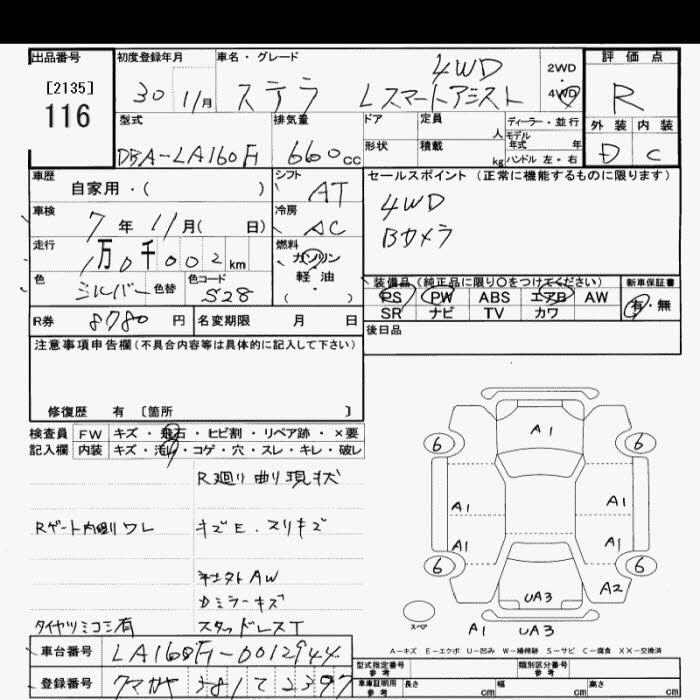 出品番号
[2135]
116
初度登録年月
30 11月
車名・グレード
4WD
ステラ Lスマートアシスト
2WD
・
4WD
評価点
R
外装 内装
D C
型式
DBA-LA160F
排気量
660cc
ドア
形状
定員
人
積載
kg
ディーラー・並行
モデル年式 年
ハンドル 左・右
車歴
自家用・( )
シフト
AT
車検
7年11月( 日)
冷房
AC
走行
1万0千002km
燃料
ガソリン
軽・油
( )
色
シルバー 色替
色コード
S28
セールスポイント (正常に機能するものに限ります)
4WD
Bカメラ
装備品(純正品に限り○をつけてください)
PS PW ABS エアB AW
SR ナビ TV カワ
新車保証書
有・無
R券 8780円
名変期限 月 日
後日品
注意事項申告欄(不具合内容等は具体的に記入して下さい)
修復歴 有 〔箇所 〕
検査員 FW キズ・飛石・ヒビ割・リペア跡・×要
記入欄 内装 キズ・汚れ・コゲ・穴・スレ・キレ・破レ
R廻り曲り現状
Rゲート内廻りワレ
キズE.スリキズ
社外AW
カミラーキズ
タイヤツミコミ有
スタッドレスT
A1
6 6
A1 A1
A1 A1
6 6
A2
UA3
スペア
A1 UA3
A-キズ E-エクボ U-凹み W-補修跡 S-サビ C-腐食 XX-交換済
車台番号 LA160F-0012944
登録番号
型式指定番号
参考
類別区分番号
参考
車庫証明用
参考
長さ cm
幅 cm
高さ cm